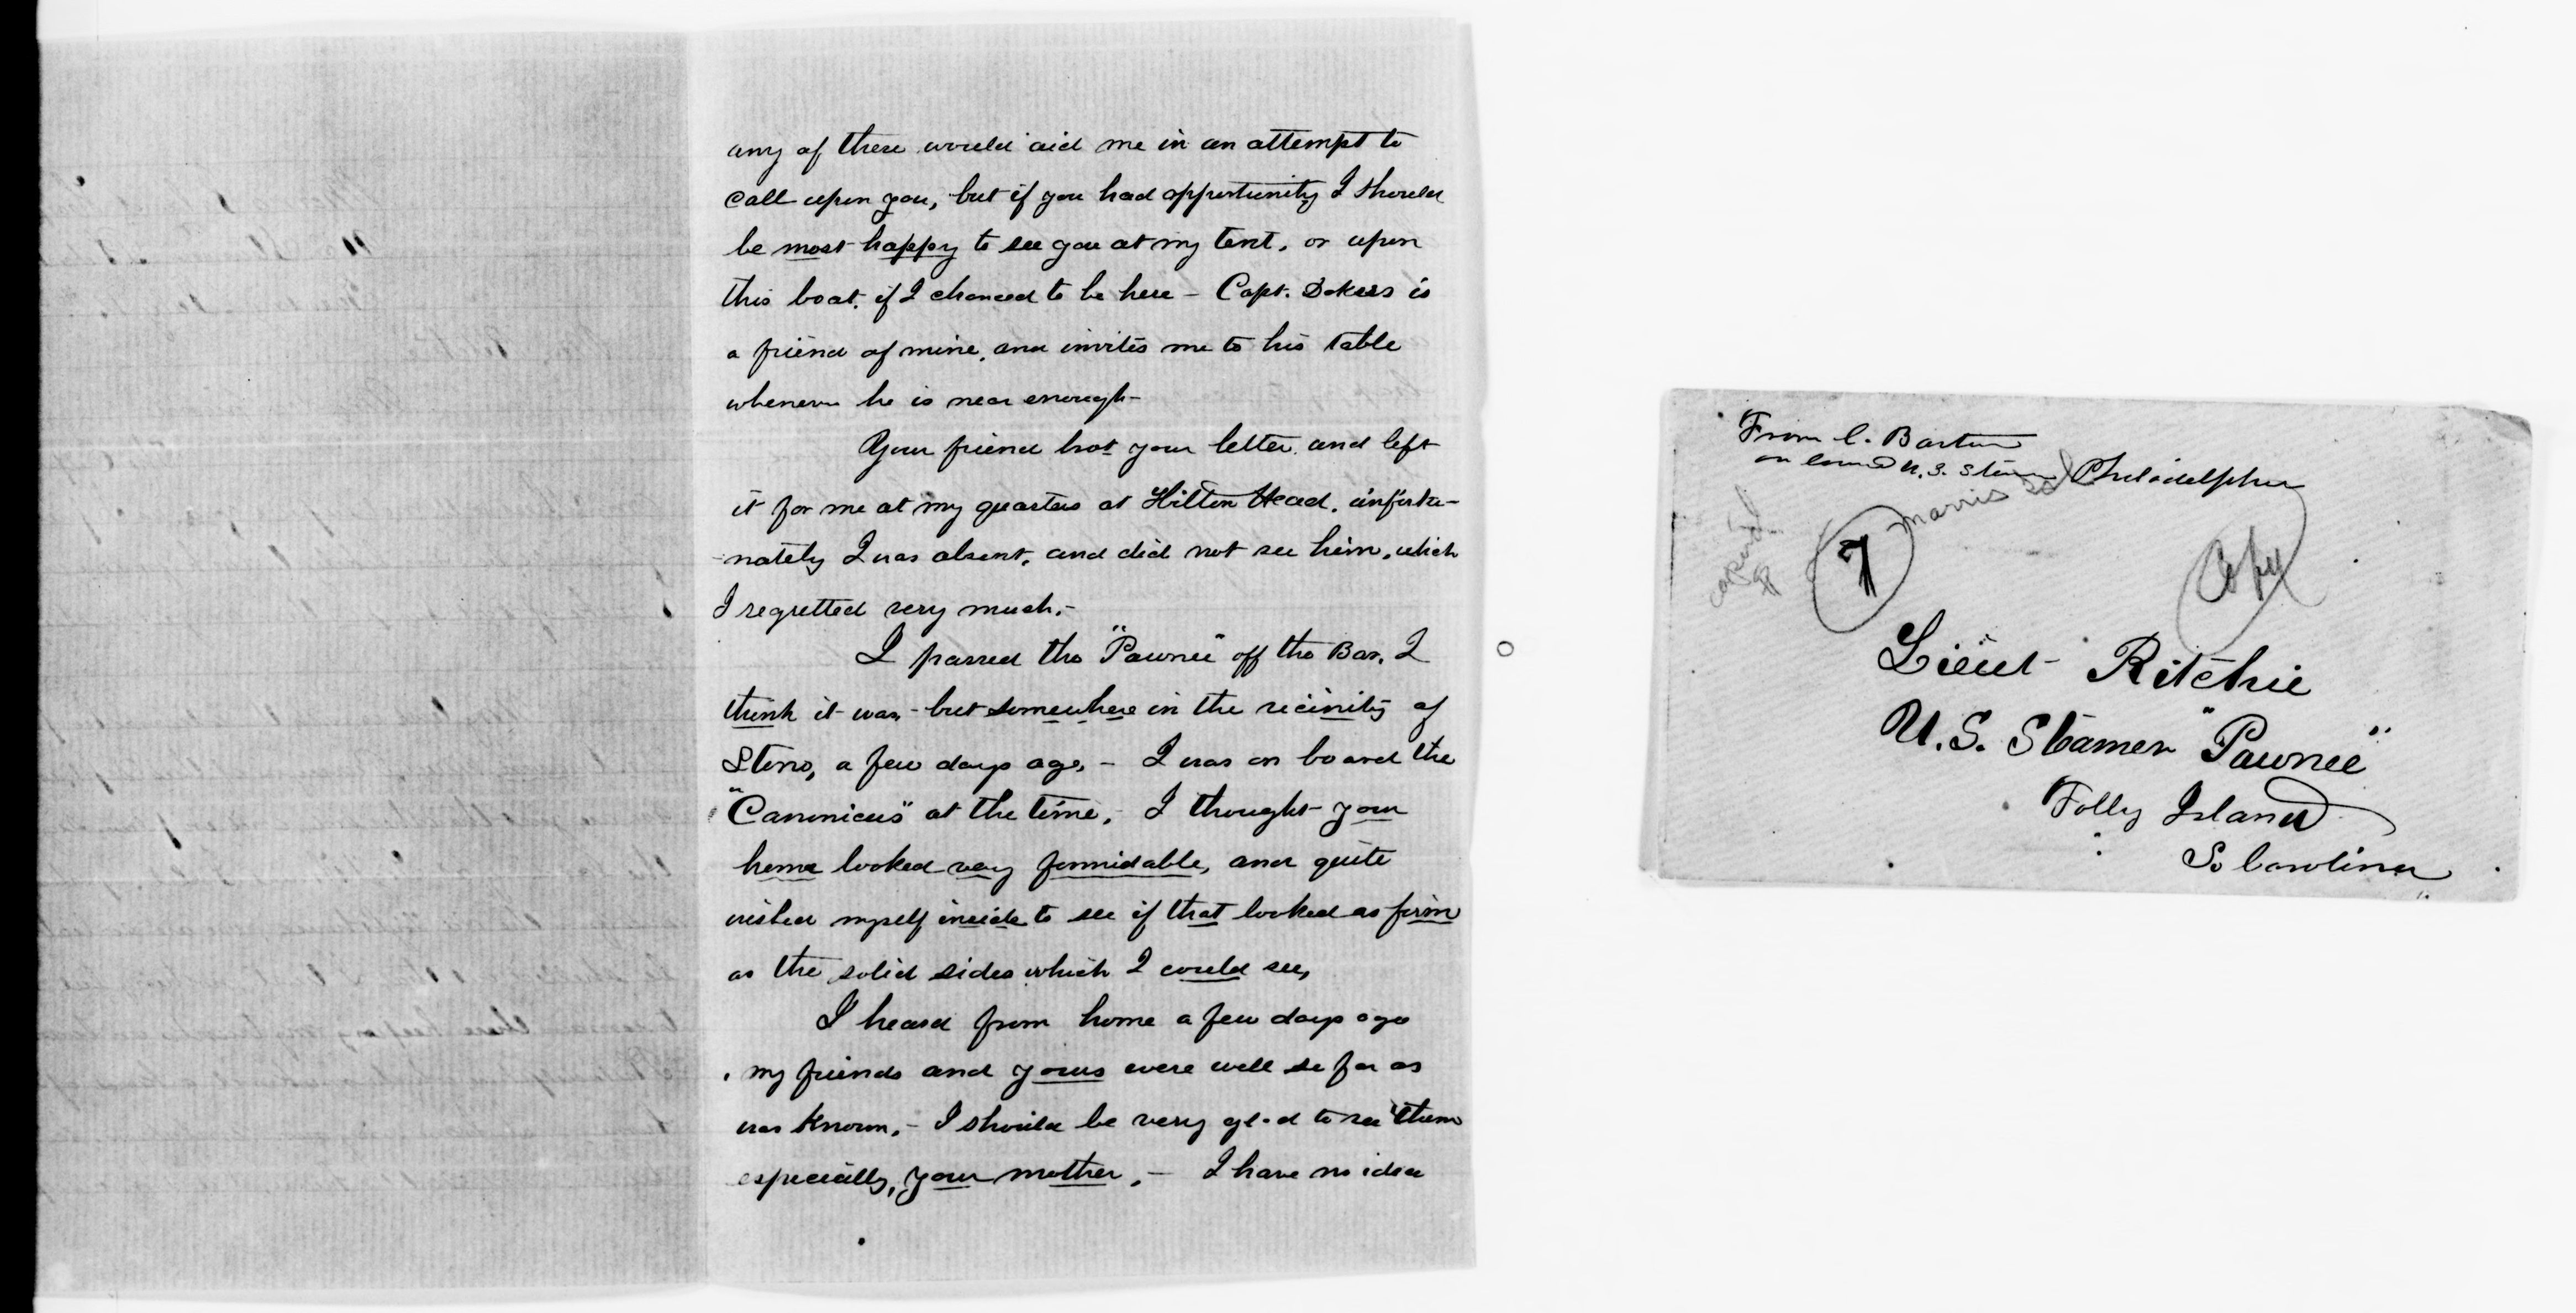 any of these would aid me in an attempt to
call upon you, but if you had opportunity I should
be most happy to see you at my tent, or upon
this boat, if I chanced to be here – Capt. is
a friend of mine, and invites me to his table
whenever he is near enough –
Your friend has your letter and left
it for me at my quarters at Hilton Head, unfortu-
-nately I was absent, and did not see him, which
I regretted very much. –
I passed the "Pawnee" off the Bar, I
think it was – but somewhere in the vicinity of
Stono, a few days ago, – I was on board the
"Canonicus" at the time, – I thought your
home looked very formidable, and quite
wished myself inside to see if that looked as firm
as the solid sides which I could see,
I heard from home a few days ago
my friends and yours were well so far as
was known, – I should be very glad to see them
especially, your mother, – I have no idea
From C. Barton
on board U.S. Steamer Philadelphia
Morris Isd
copied
7
Copy
Lieut Ritchie
U.S. Steamer "Pawnee"
Folly Island
So Carolina